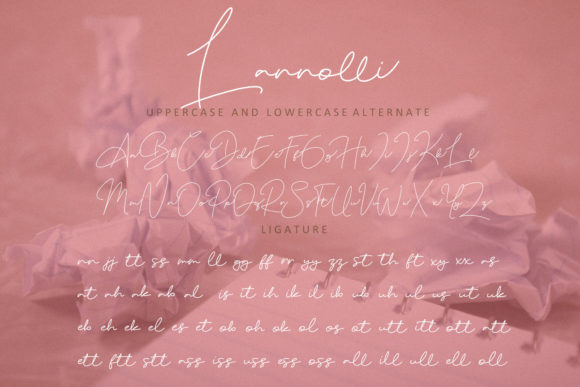 Lannolli
UPPERCASE AND LOWERCASE ALTERNATE
AaBbCcDdEeFfGgHhIiJjKkLl
MmNnOoPpQqRrSsTtUuVvWwXxYyZz
LIGATURE
nn jj tt ss mm ll gg ff rr yy zz st th ft xy xx as
at ah ak ab al is it ih ik il ib ub uh ul us ut uk
eb eh ek el es et ob oh ok ol os ot utt itt ott att
ett ftt stt ass iss uss ess oss all ill ull ell oll